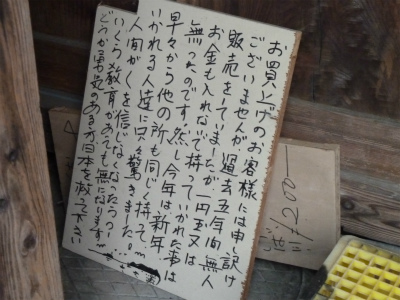 お買上げのお客様には申し訳
ございませんが過去五年間無人
販売をしていましたが一円玉又は
お金も入れないで持っていかれた事は
無ったのです、然し今年は新年
早々から他の所も同じく持って
いかれる人達に只々驚きました…
人間がくを信じなくなったら…
いくら教育があっても無になります…
どうか勇気のある方日本を救って下さい
¥200ー